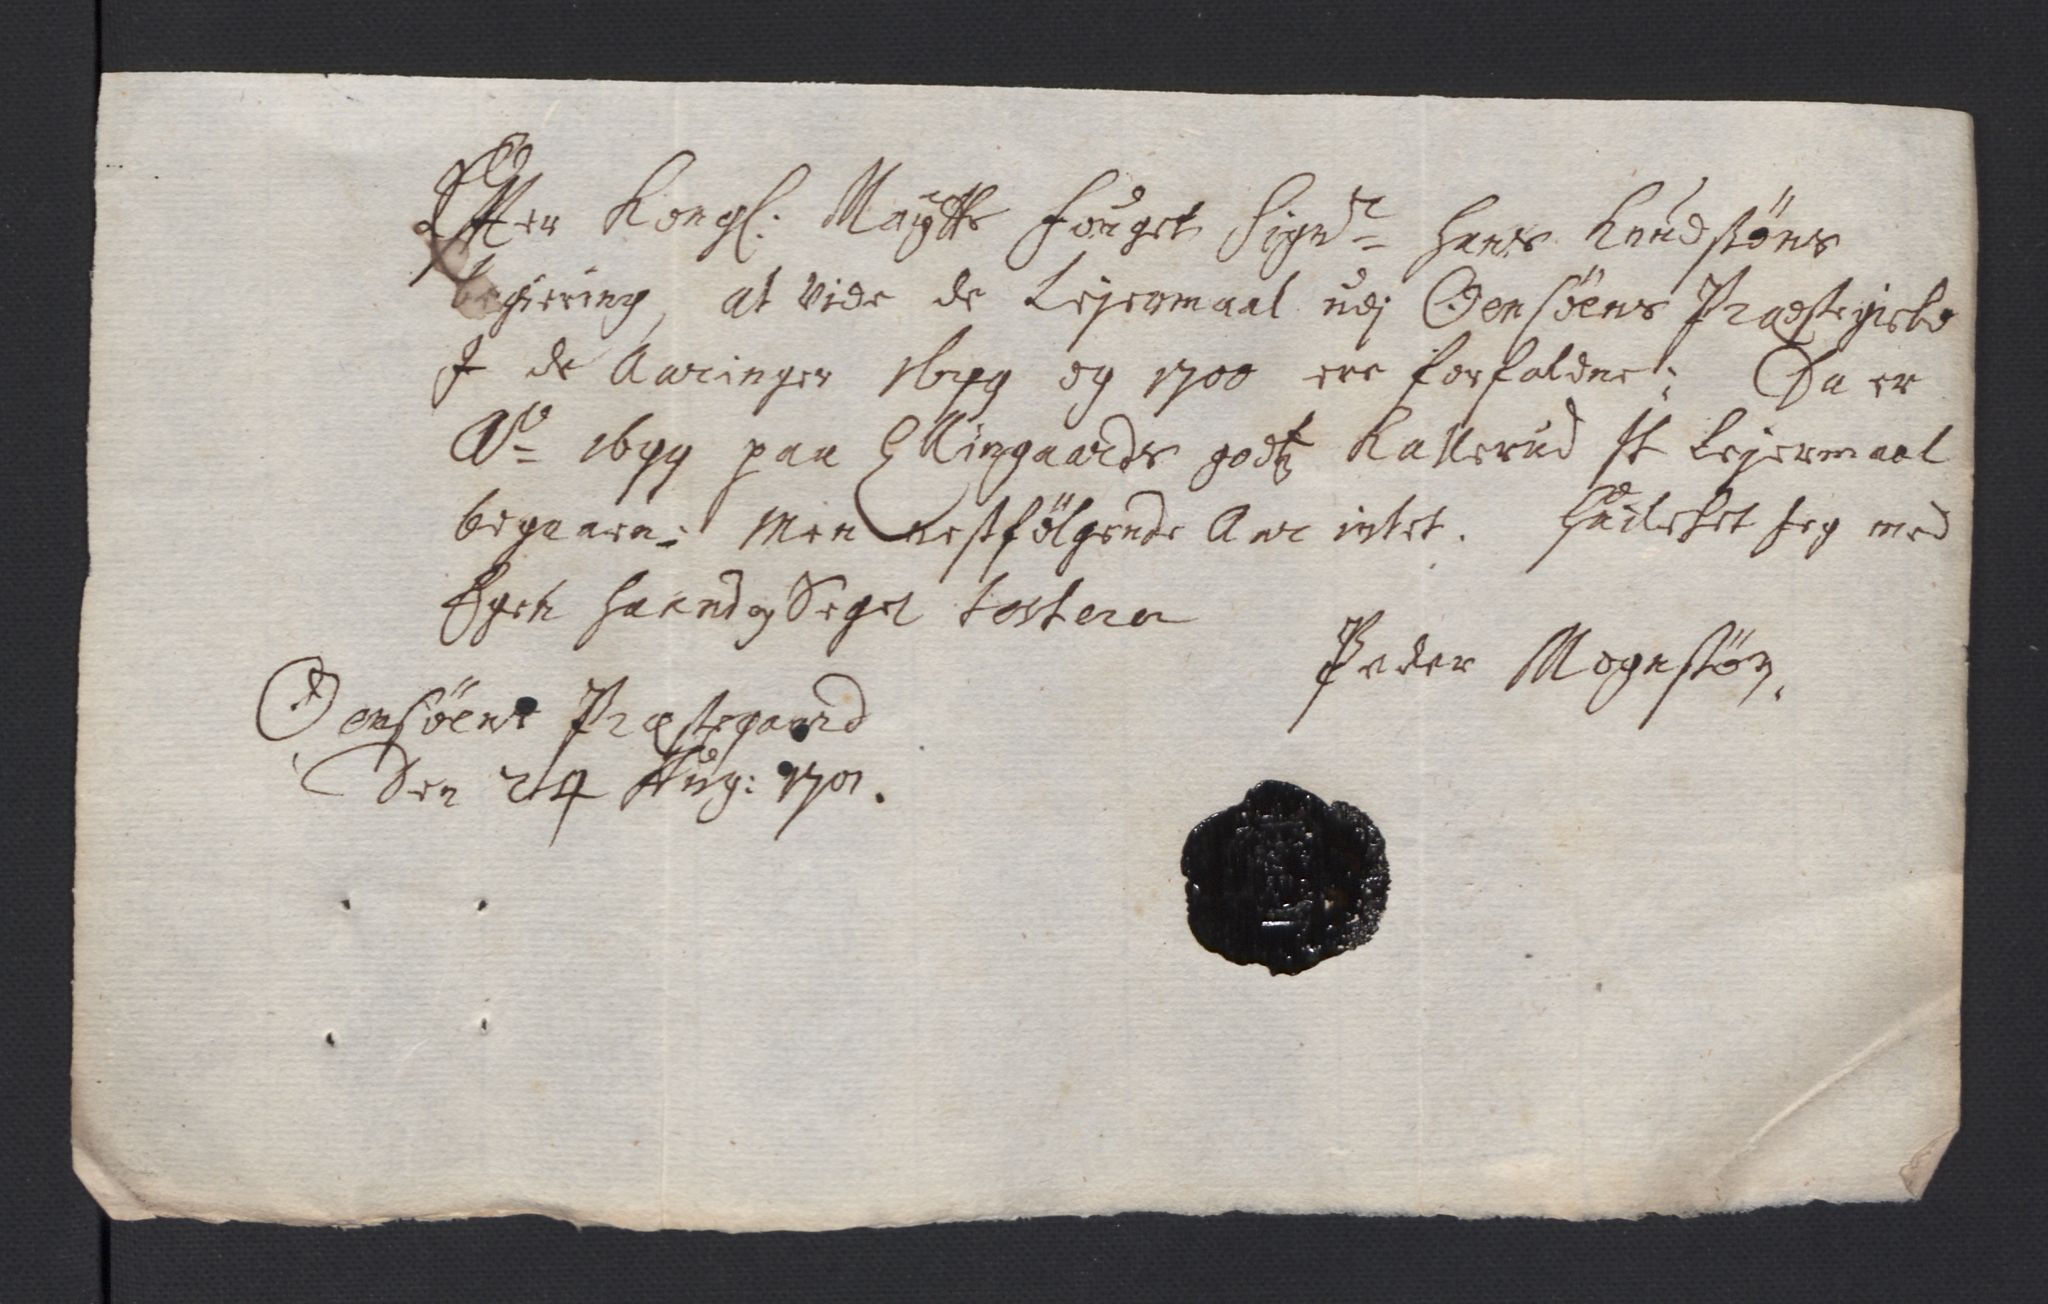 Efter Kongl: Maytts Fouget Sign:r Hans Knudsøns
begiering, at vide de Lejermaal udj Oensøens Præstegield
I de Aaringer 1699 og 1700 ere forfaldne; Da er
Ao 1699 paa Ellingaards godtz Kallerud It Lejermaal
begaaen; Men nestfølgende Aar intet. Huilchet Jeg med
Egen Haand og Segel testerer
Peder Mognsøn.
Oensøens Præstegaard
Den 24 Aug: 1701.